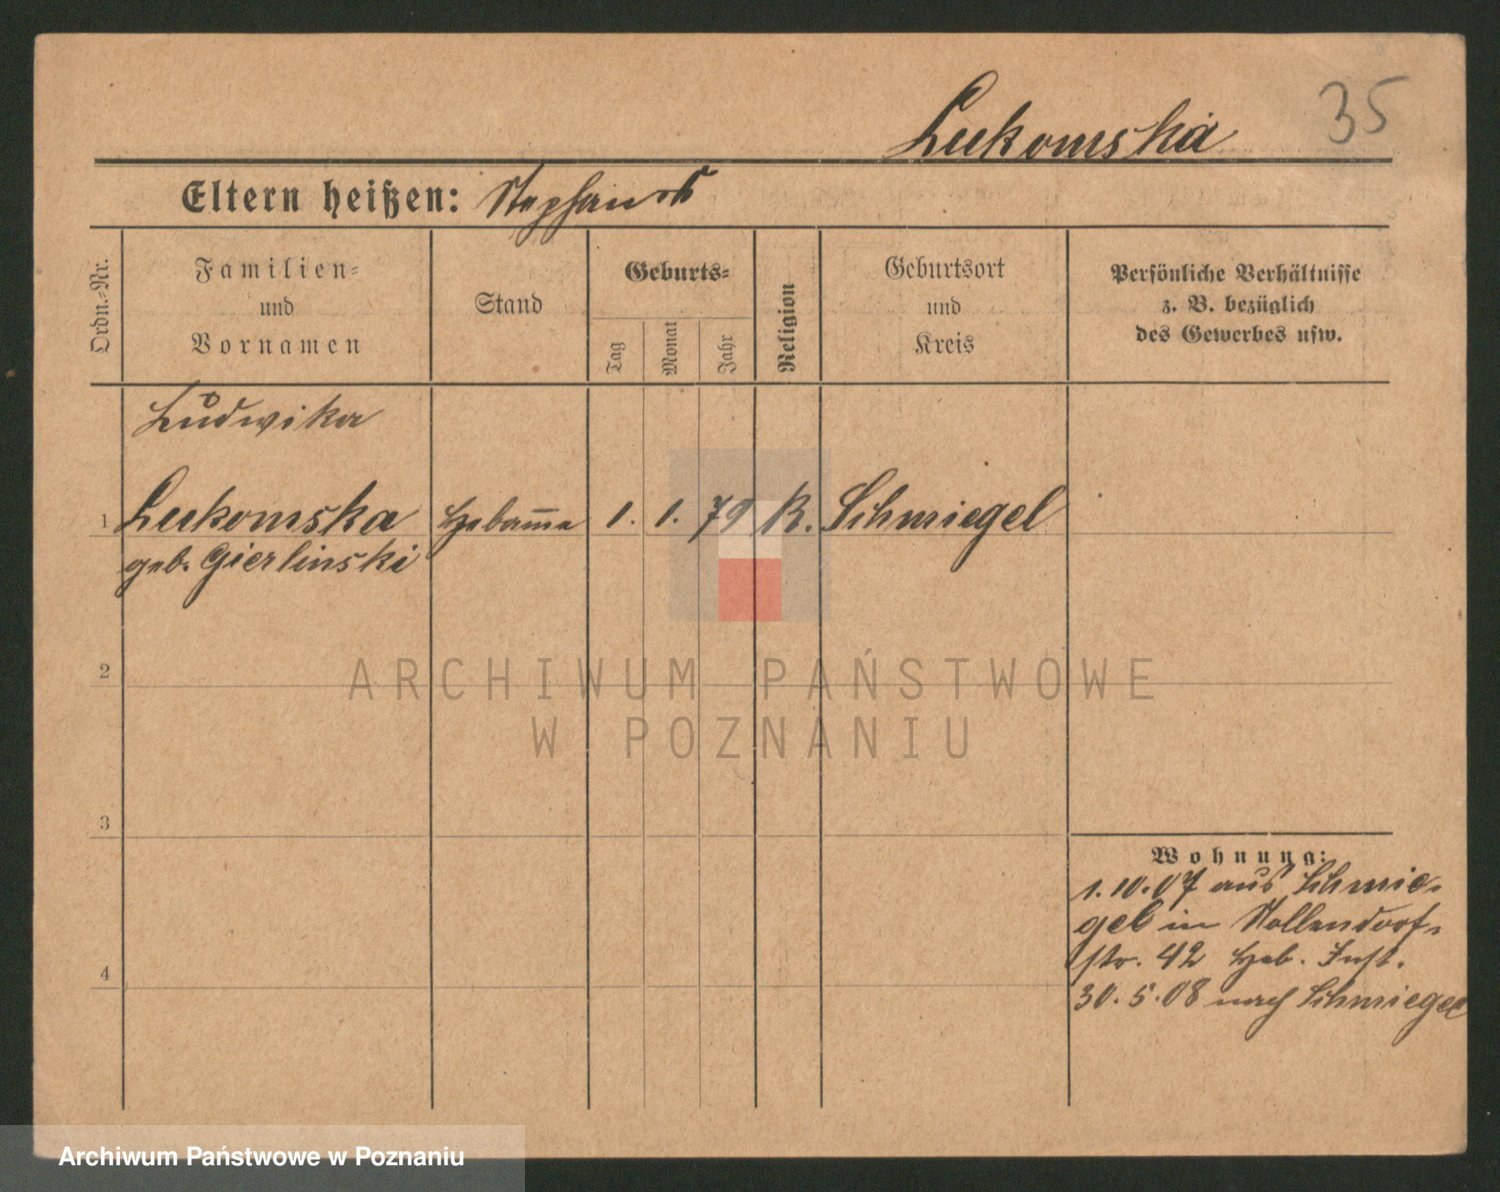 Lukomska
35
Eltern heißen:
Ordn.-Nr.
Familien-
und
Vornamen
Stand
Geburts-
Tag
Monat
Jahr
Religion
Geburtsort
und
Kreis
Persönliche Verhältnisse
z. B. bezüglich
des Gewerbes usw.
Ludwika
1 Lukomska Hebam̅e 1. 1. 79 K. Schmiegel
geb. Gierlinski
2
ARCHIWUM PAŃSTWOWE
W POZNANIU
3
Wohnung:
1.10.07 aus Schmie-
gel in Nollendorf-
str. 42 Heb. Inst.
4
30.5.08 nach Schmiegel
Archiwum Państwowe w Poznaniu